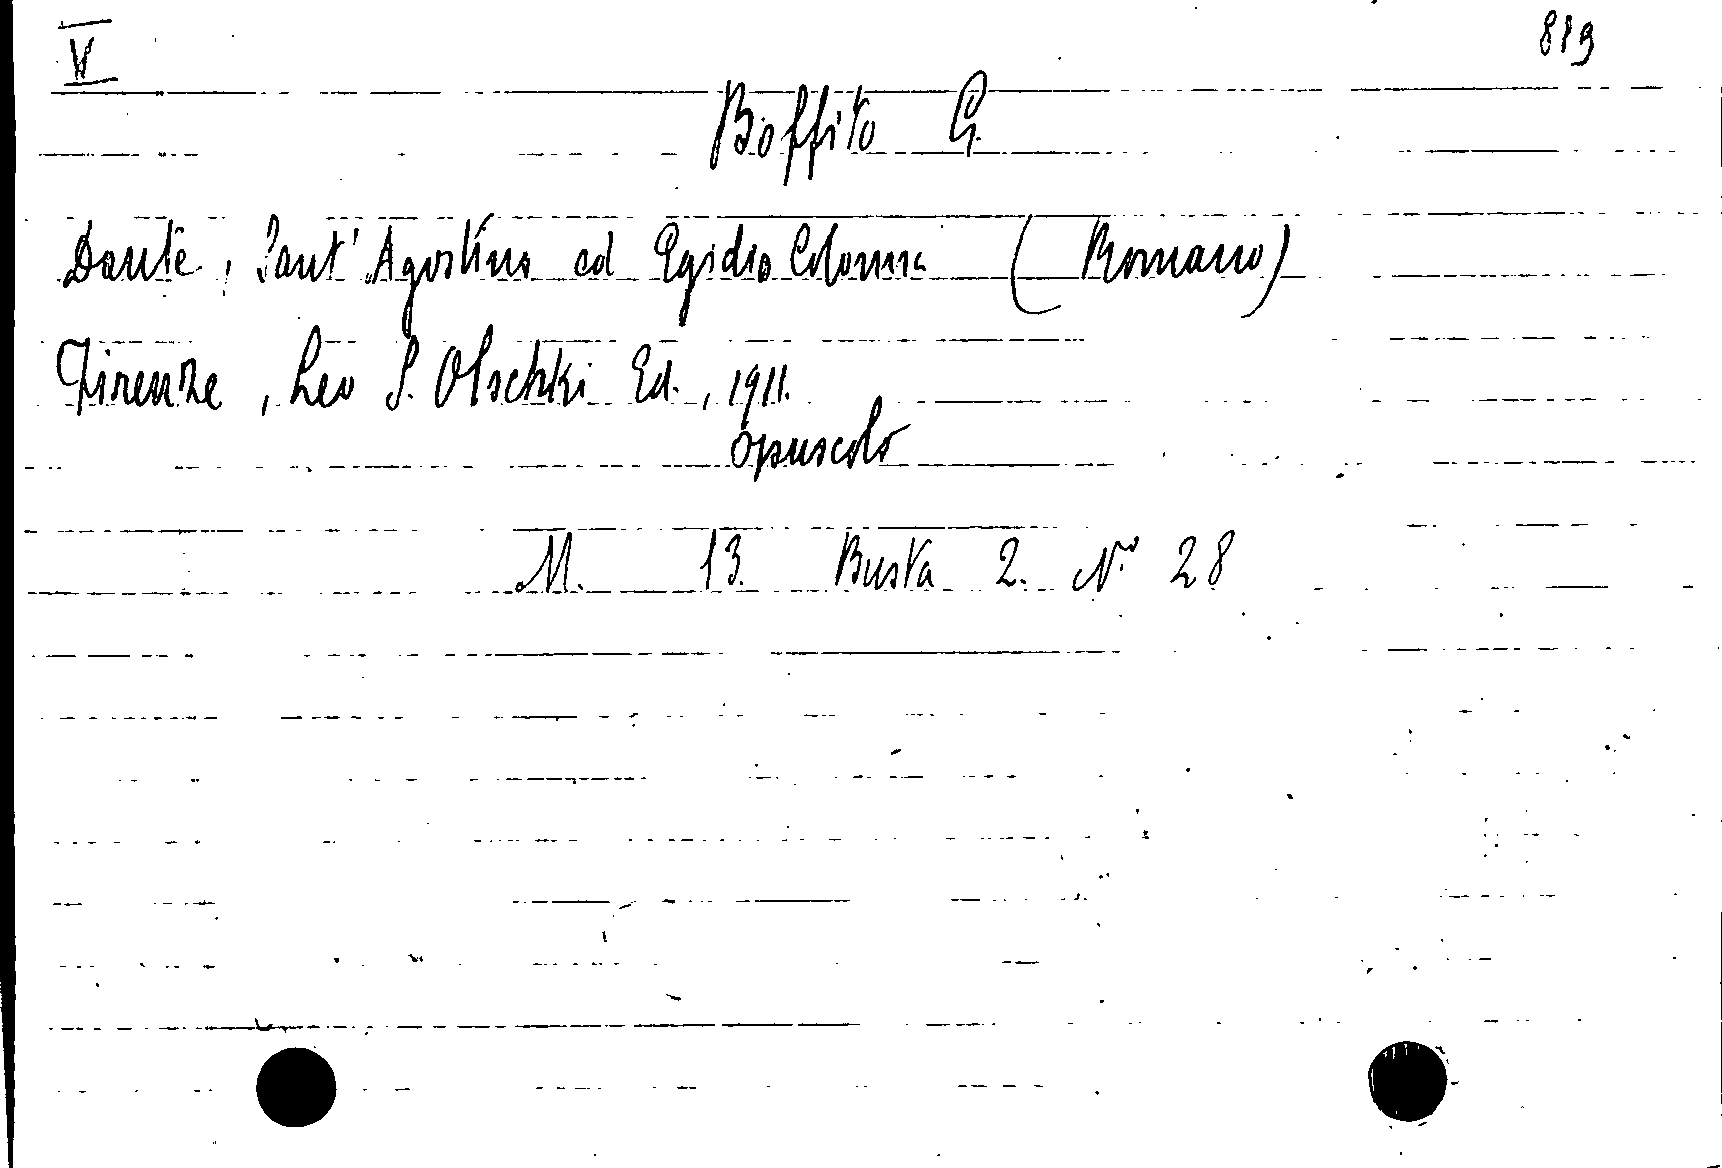 V 819
Boffito G.
Dante, Sant' Agostino ed Egidio Colonna (Romano)
Firenze, Leo S. Olschki Ed., 1911.
opuscolo
M. 13. Busta 2. N.° 28